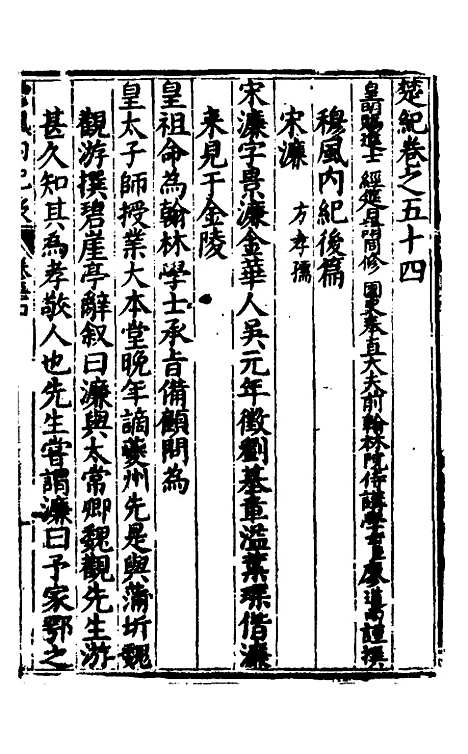 楚紀卷之五十四
皇明賜進士 經筵日講間修 國史奉直大夫前翰林院侍講學士臣廖道南謹撰
穆風內紀後篇
宋濂 方孝孺
宋濂字景濂金華人吳元年徵劉基章溢葉琛偕濂
来見于金陵
皇祖命為翰林學士承旨備顧問為
皇太子師授業大本堂晚年謫夔州先是與蒲圻魏
觀游撰碧崖亭辭叙曰濂與太常卿魏觀先生游
甚久知其為孝敬人也先生嘗謂濂曰予家鄂之